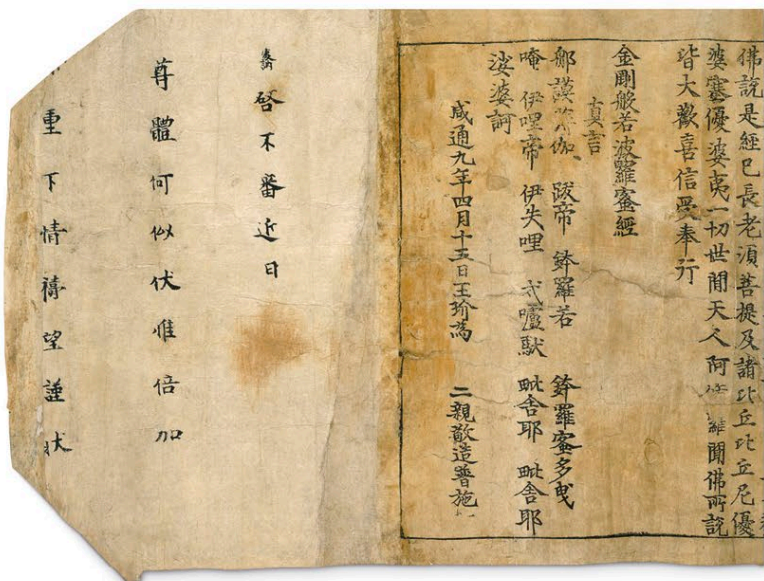 佛說是經已長老須菩提及諸比丘比丘尼優
婆塞優婆夷一切世間天人阿修羅聞佛所說
皆大歡喜信受奉行
金剛般若波羅蜜經
真言
郍謨薄伽 跋帝 鉢羅若 鉢羅蜜多曳
唵 伊哩帝 伊失哩 戍嚧馱 毗舍耶 毗舍耶
娑婆訶
咸通九年四月十五日王玠為 二親敬造普施
啓不審近日
尊體何似伏惟倍加
重下情禱望謹狀